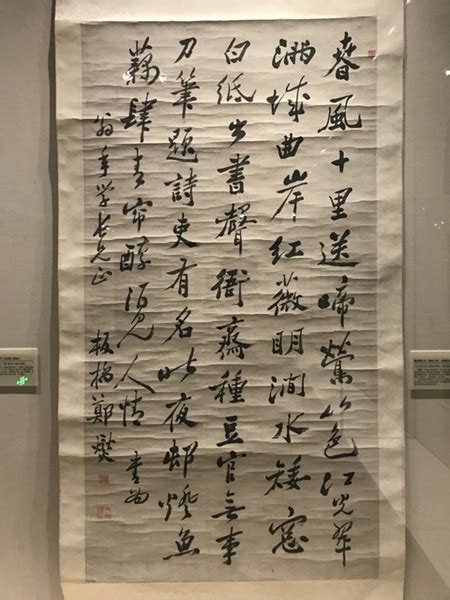 春風十里送啼鶯山色江光翠
滿城曲岸紅薇明澗水矮窓
白紙出書聲衙齋種豆官無事
刀筆題詩吏有名昨夜邨燈魚
藕肆青帘醇酒見人情 書為
翁年学老兄正 板橋鄭燮